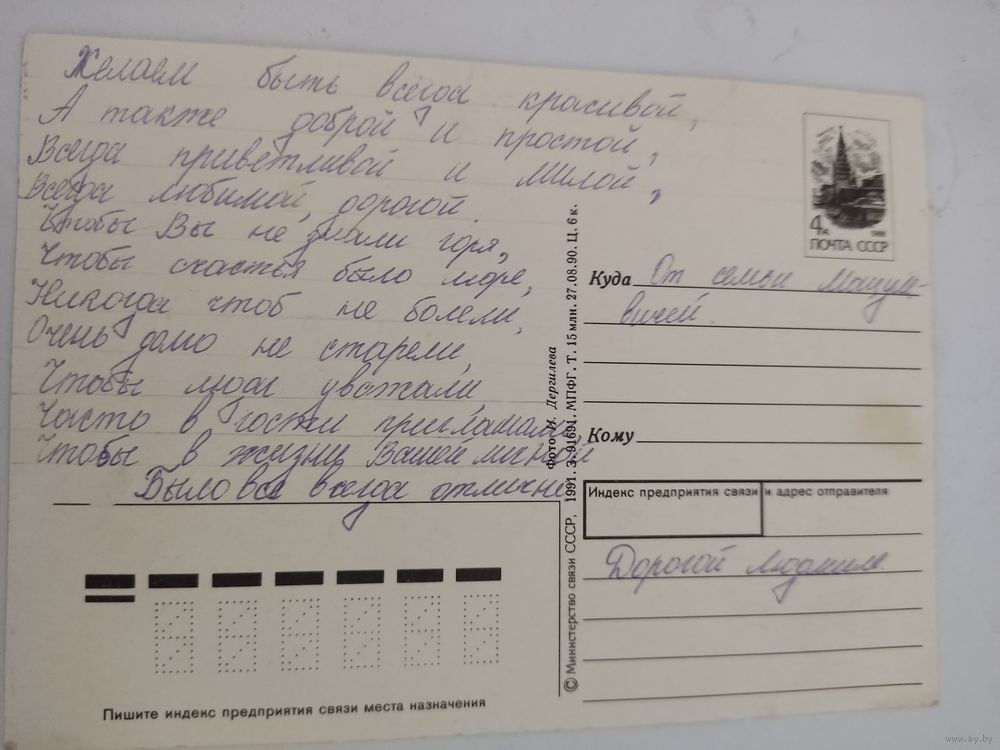 Желаем быть всегда красивой,
А также доброй и простой,
Всегда приветливой и милой,
Всегда любимой, дорогой.
Чтобы Вы не знали горя,
Чтобы счастья было море,
Никогда чтоб не болели,
Очень долго не старели,
Чтобы люди уважали,
Часто в гости приглашали,
Чтобы в жизни Вашей личной
Было всё всегда отлично
4к. 1988
ПОЧТА СССР
Куда От семьи
вичей.
Кому
Индекс предприятия связи и адрес отправителя
Дорогой Людмиле
Фото И. Дергилева
© Министерство связи СССР, 1991. З. 91691. МПФГ. Т. 15 млн. 27.08.90. Ц. 6 к.
Пишите индекс предприятия связи места назначения
www.ay.by